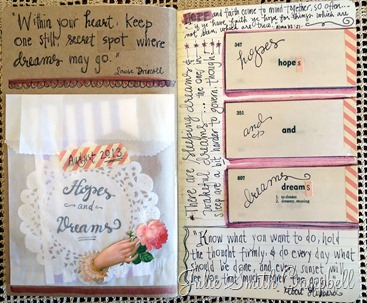 "Within your heart, keep
one still, secret spot where
dreams may go."
Louise Driscoll
August 2013
Hopes
and
Dreams
HOPE and faith come to mind together, so often...
if you have faith, you hope for things which are
not seen, which are true.
There are sleeping dreams &
wakeful dreams... the ones in
sleep are a bit harder to govern, though
347
hopes
hopes
351
and
and
807
dreams
dreams
"Know what you want to do, hold
the thought firmly, & do every day what
should be done, and every sunset will
see you that much nearer the goal."
Elbert Hubbard
Julie Smith Campbell